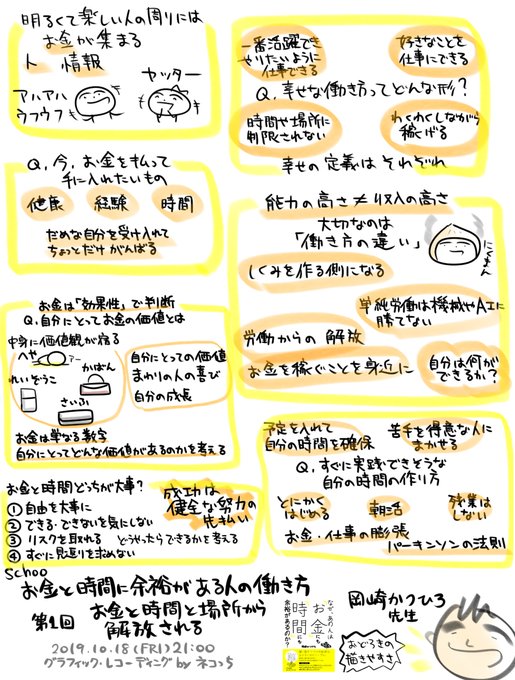 明るくて楽しい人の周りには
お金が集まる
人 情報
アハアハ
ウフウフ
ヤッター
Q,今,お金を払って
手に入れたいもの
健康 経験 時間
だめな自分を受け入れて
ちょっとだけがんばる
お金は「効果性」で判断
Q,自分にとってお金の価値とは
中身に価値観が宿る
へや
れいぞうこ
かばん
さいふ
自分にとっての価値
まわりの人の喜び
自分の成長
お金は単なる数字
自分にとってどんな価値があるのかを考える
お金と時間どっちが大事?
①自由を大事に
②できる・できないを気にしない
③リスクを取れる どうやったらできるかを考える
④すぐに見返りを求めない
成功は
健全な努力の
先払い
一番活躍でき
やりたいように
仕事できる
好きなことを
仕事にできる
Q,幸せな働き方ってどんな形?
時間や場所に
制限されない
わくわくしながら
稼げる
幸せの定義はそれぞれ
能力の高さ≠収入の高さ
大切なのは
「働き方の違い」
にんげん
しくみを作る側になる
単純労働は機械やAIに
勝てない
労働からの解放
お金を稼ぐことを身近に
自分は何が
できるか?
予定を入れて
自分の時間を確保
苦手を得意な人に
まかせる
Q,すぐに実践できそうな
自分の時間の作り方
とにかく
はじめる
朝活
残業は
しない
お金・仕事の膨張
パーキンソンの法則
Schoo
お金と時間に余裕がある人の働き方
第1回 お金と時間と場所から
解放される
2019.10.18(FRI)21:00
グラフィックレコーディング by ネコっち
なぜ、あの人は
お金にも
時間にも
余裕があるのか?
岡崎かつひろ
先生
おどろきの
描きやすさ